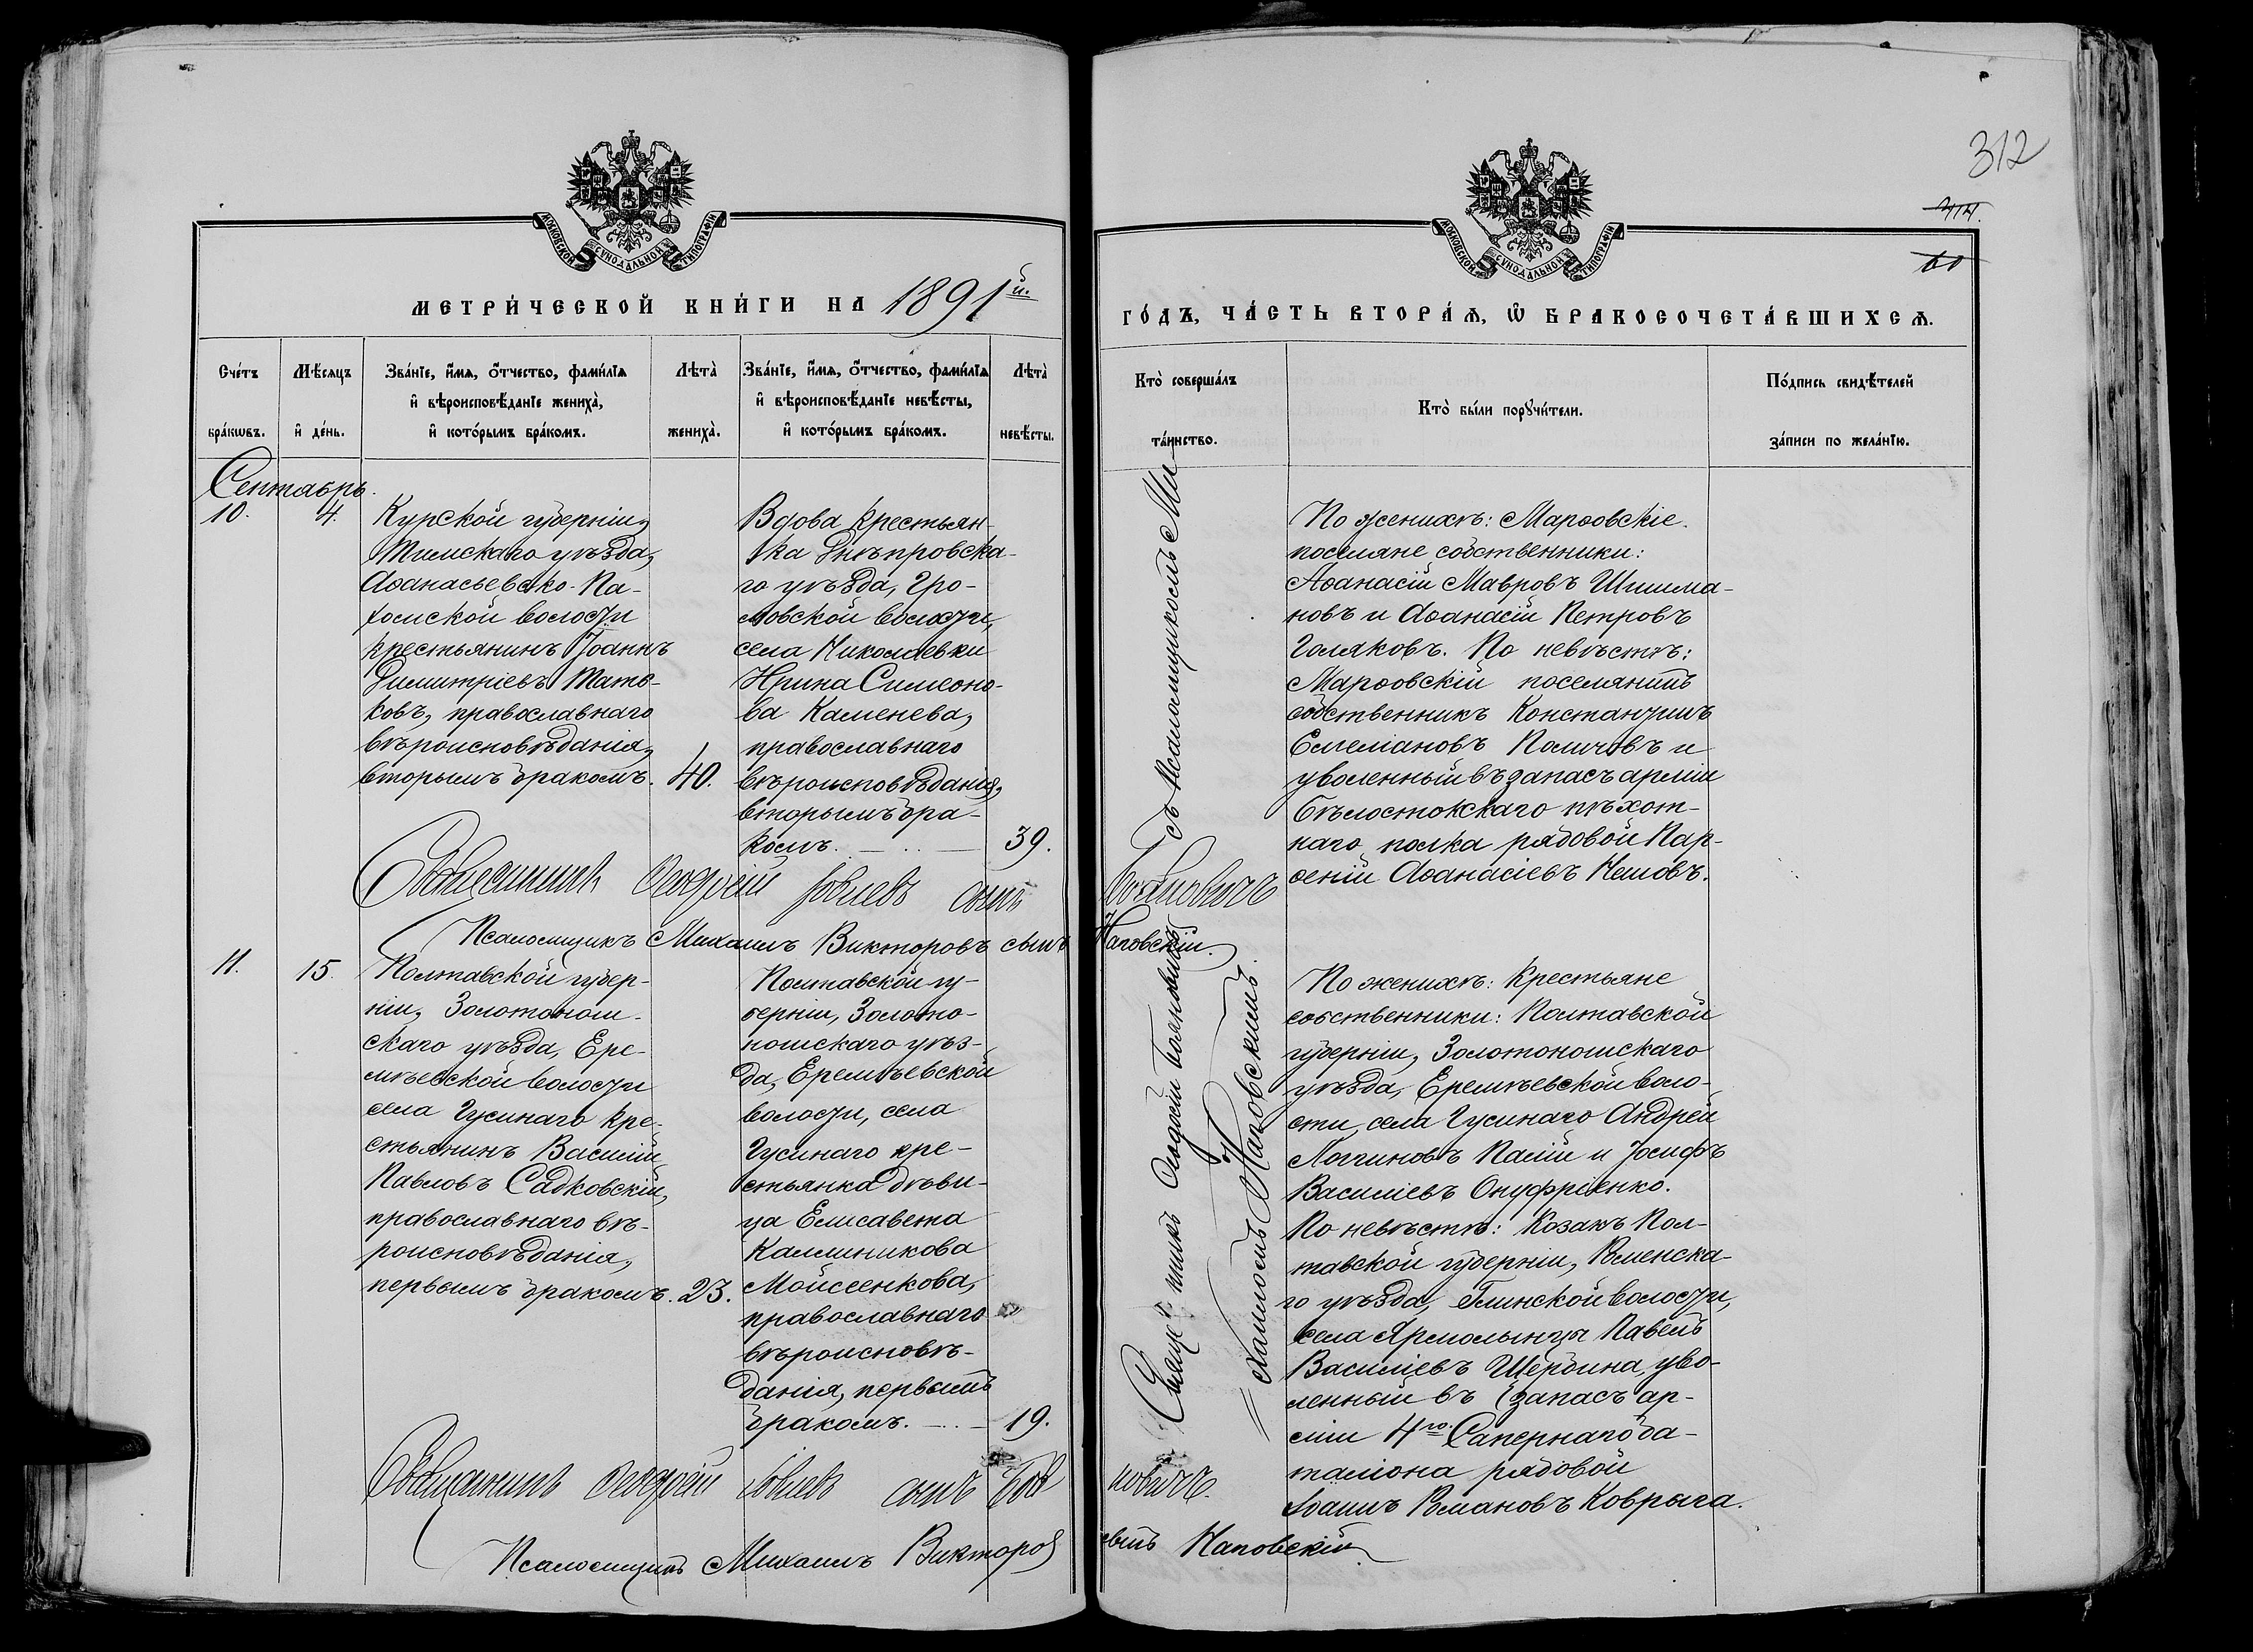 312
314.
60
МОСКОВСКОЙ СѴНОДАЛЬНОЙ ТИПОГРАФІИ
МОСКОВСКОЙ СѴНОДАЛЬНОЙ ТИПОГРАФІИ
МЕТРИ́ЧЕСКОЙ КНИ́ГИ НА 1891й.
ГО́ДЪ, ЧА́СТЬ ВТОРА́Ѧ, Ѽ БРАКОСОЧЕТА́ВШИХСѦ.
Сче́тъ
бра́кѡвъ.
Мѣ́сяцъ
и҆ де́нь.
Зва́нїе, и҆́мѧ, о҆́тчество, фами́лїѧ
и҆ вѣроисповѣ́данїе жениха̀,
и҆ кото́рымъ бра́комъ.
Лѣта̀
жениха̀.
Зва́нїе, и҆́мѧ, о҆́тчество, фами́лїѧ
и҆ вѣроисповѣ́данїе невѣ́сты,
и҆ кото́рымъ бра́комъ.
Лѣта̀
невѣ́сты.
Кто̀ соверша́лъ
та́инство.
Кто̀ бы́ли порꙋчи́тели.
По́дпись свидѣ́телей
за́писи по жела́нїю.
Сентябрь.
10.
4.
Курской губерніи,
Тимскаго уѣзда,
Аѳанасьевско-Па-
хомской волости
крестьянинъ Іоаннъ
Димитріевъ Мать-
ковъ, православнаго
вѣроисповѣданія,
вторымъ бракомъ.
40.
Вдова крестьян-
ка Днѣпровска-
го уѣзда, Гро-
мовской волости,
села Николаевки
Ирина Симеоно-
ва Каменева,
православнаго
вѣроисповѣданія,
вторымъ бра-
комъ.
39.
Священникъ Ѳеодосій Бояновичъ съ псаломщикомъ Ми-
хаиломъ Наповскимъ.
По женихѣ: Марѳовскіе
поселяне собственники:
Аѳанасій Мавровъ Шишма-
новъ и Аѳанасій Петровъ
Голяковъ. По невѣстѣ:
Марѳовскій поселянинъ
собственникъ Константинъ
Емеліановъ Поличовъ и
уволенный въ запасъ арміи
Бѣлостокскаго пѣхот-
наго полка рядовой Пар-
ѳеній Аѳанасіевъ Немовъ.
Священникъ Ѳеодосій Іовлевъ сынъ Бояновичъ
Псаломщикъ Михаилъ Викторовъ сынъ Наповскій.
11.
15.
Полтавской губер-
ніи, Золотонош-
скаго уѣзда, Ере-
мѣевской волости
села Гусинаго кре-
стьянинъ Василій
Павловъ Садковскій,
православнаго вѣ-
роисповѣданія,
первымъ бракомъ.
23.
Полтавской гу-
берніи, Золото-
ношскаго уѣз-
да, Еремѣевской
волости, села
Гусинаго кре-
стьянка дѣви-
ца Елисавета
Каллиникова
Мойсеенкова,
православнаго
вѣроисповѣ-
данія, первымъ
бракомъ.
19.
По женихѣ: Крестьяне
собственники: Полтавской
губерніи, Золотоношскаго
уѣзда, Еремѣевской воло-
сти, села Гусинаго Андрей
Логгиновъ Палій и Іосифъ
Василіевъ Онуфріенко.
По невѣстѣ: Козакъ Пол-
тавской губерніи, Роменска-
го уѣзда, Глинской волости,
села Ярмолынцы Павелъ
Василіевъ Щербина, уво-
ленный въ запасъ ар-
міи 4го Сапернаго ба-
таліона рядовой
Іоаннъ Романовъ Коврыга.
Священникъ Ѳеодосій Іовлевъ сынъ Бояновичъ.
Псаломщикъ Михаилъ Викторовъ сынъ Наповскій.